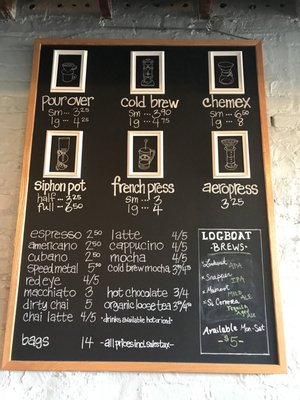 pour over
sm ... 3.25
lg ... 4.25
cold brew
sm ... 3.90
lg ... 4.75
chemex
sm ... 6.50
lg ... 8
siphon pot
half ... 3.25
full ... 6.50
french press
sm ... 3
lg ... 4
aeropress
3.25
espresso 2.50
americano 2.50
cubano 2.50
speed metal 5
red eye 4/5
macchiato 3
dirty chai 5
chai latte 4/5
bags 14 -all prices incl. sales tax-
latte 4/5
cappucino 4/5
mocha 4/5
cold brew mocha
hot chocolate 3/4
organic loose tea
*drinks available hot or iced*
LOGBOAT
-BREWS-
Lookout APA
Snapper IPA
Mamoot MILD ALE
Available Mon-Sat
-$5-